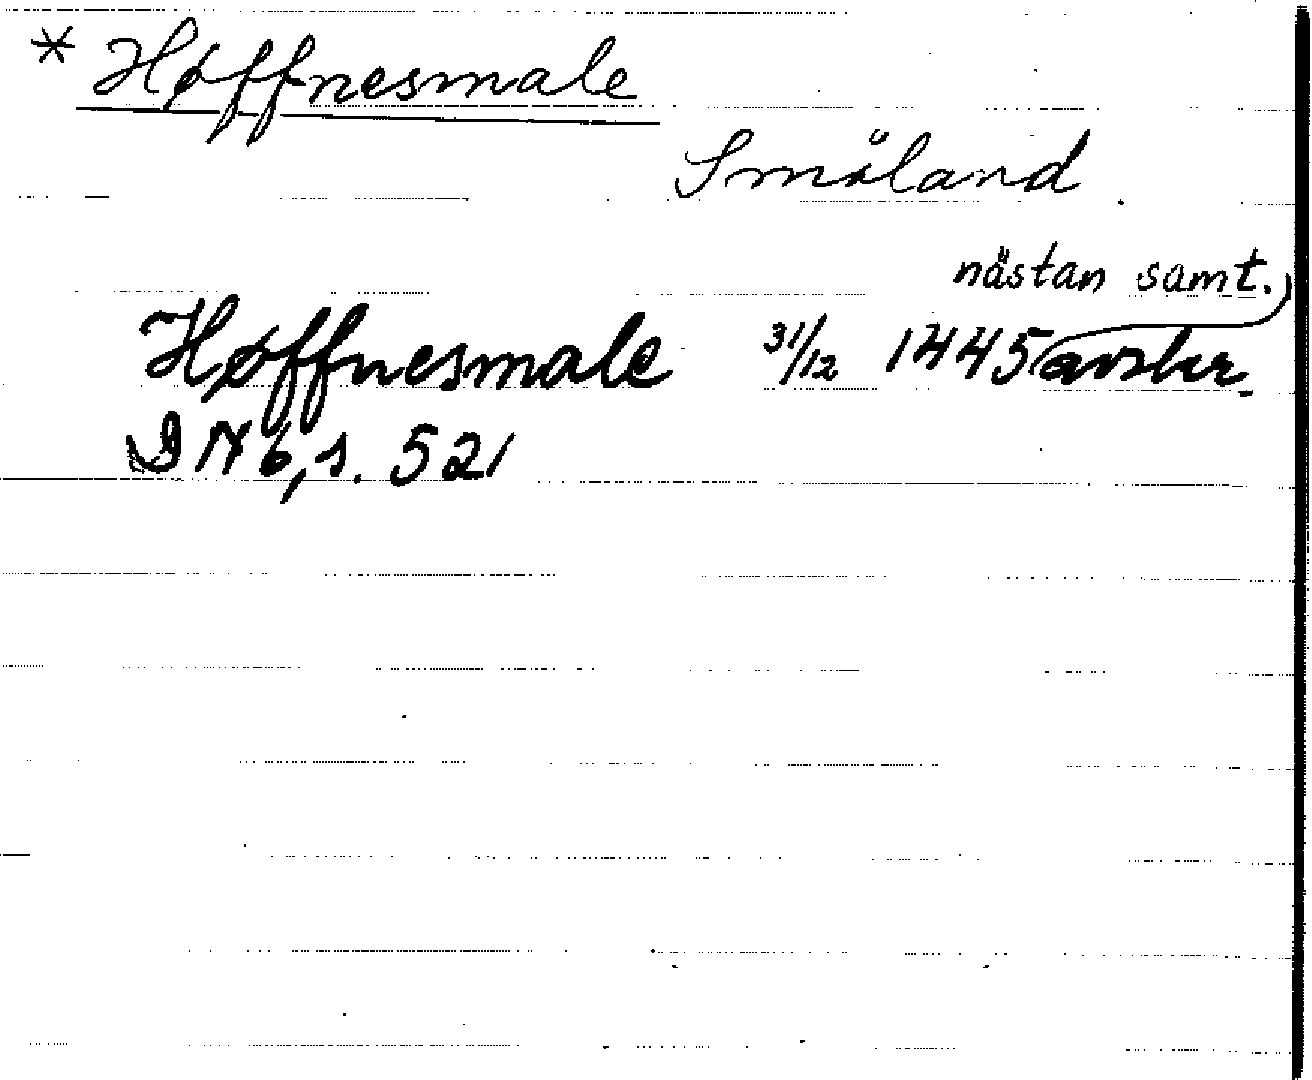 * Høffnesmale
Småland
nästan samt.
Høffnesmale 31/12 1445 avskr.
DN 6, s. 521